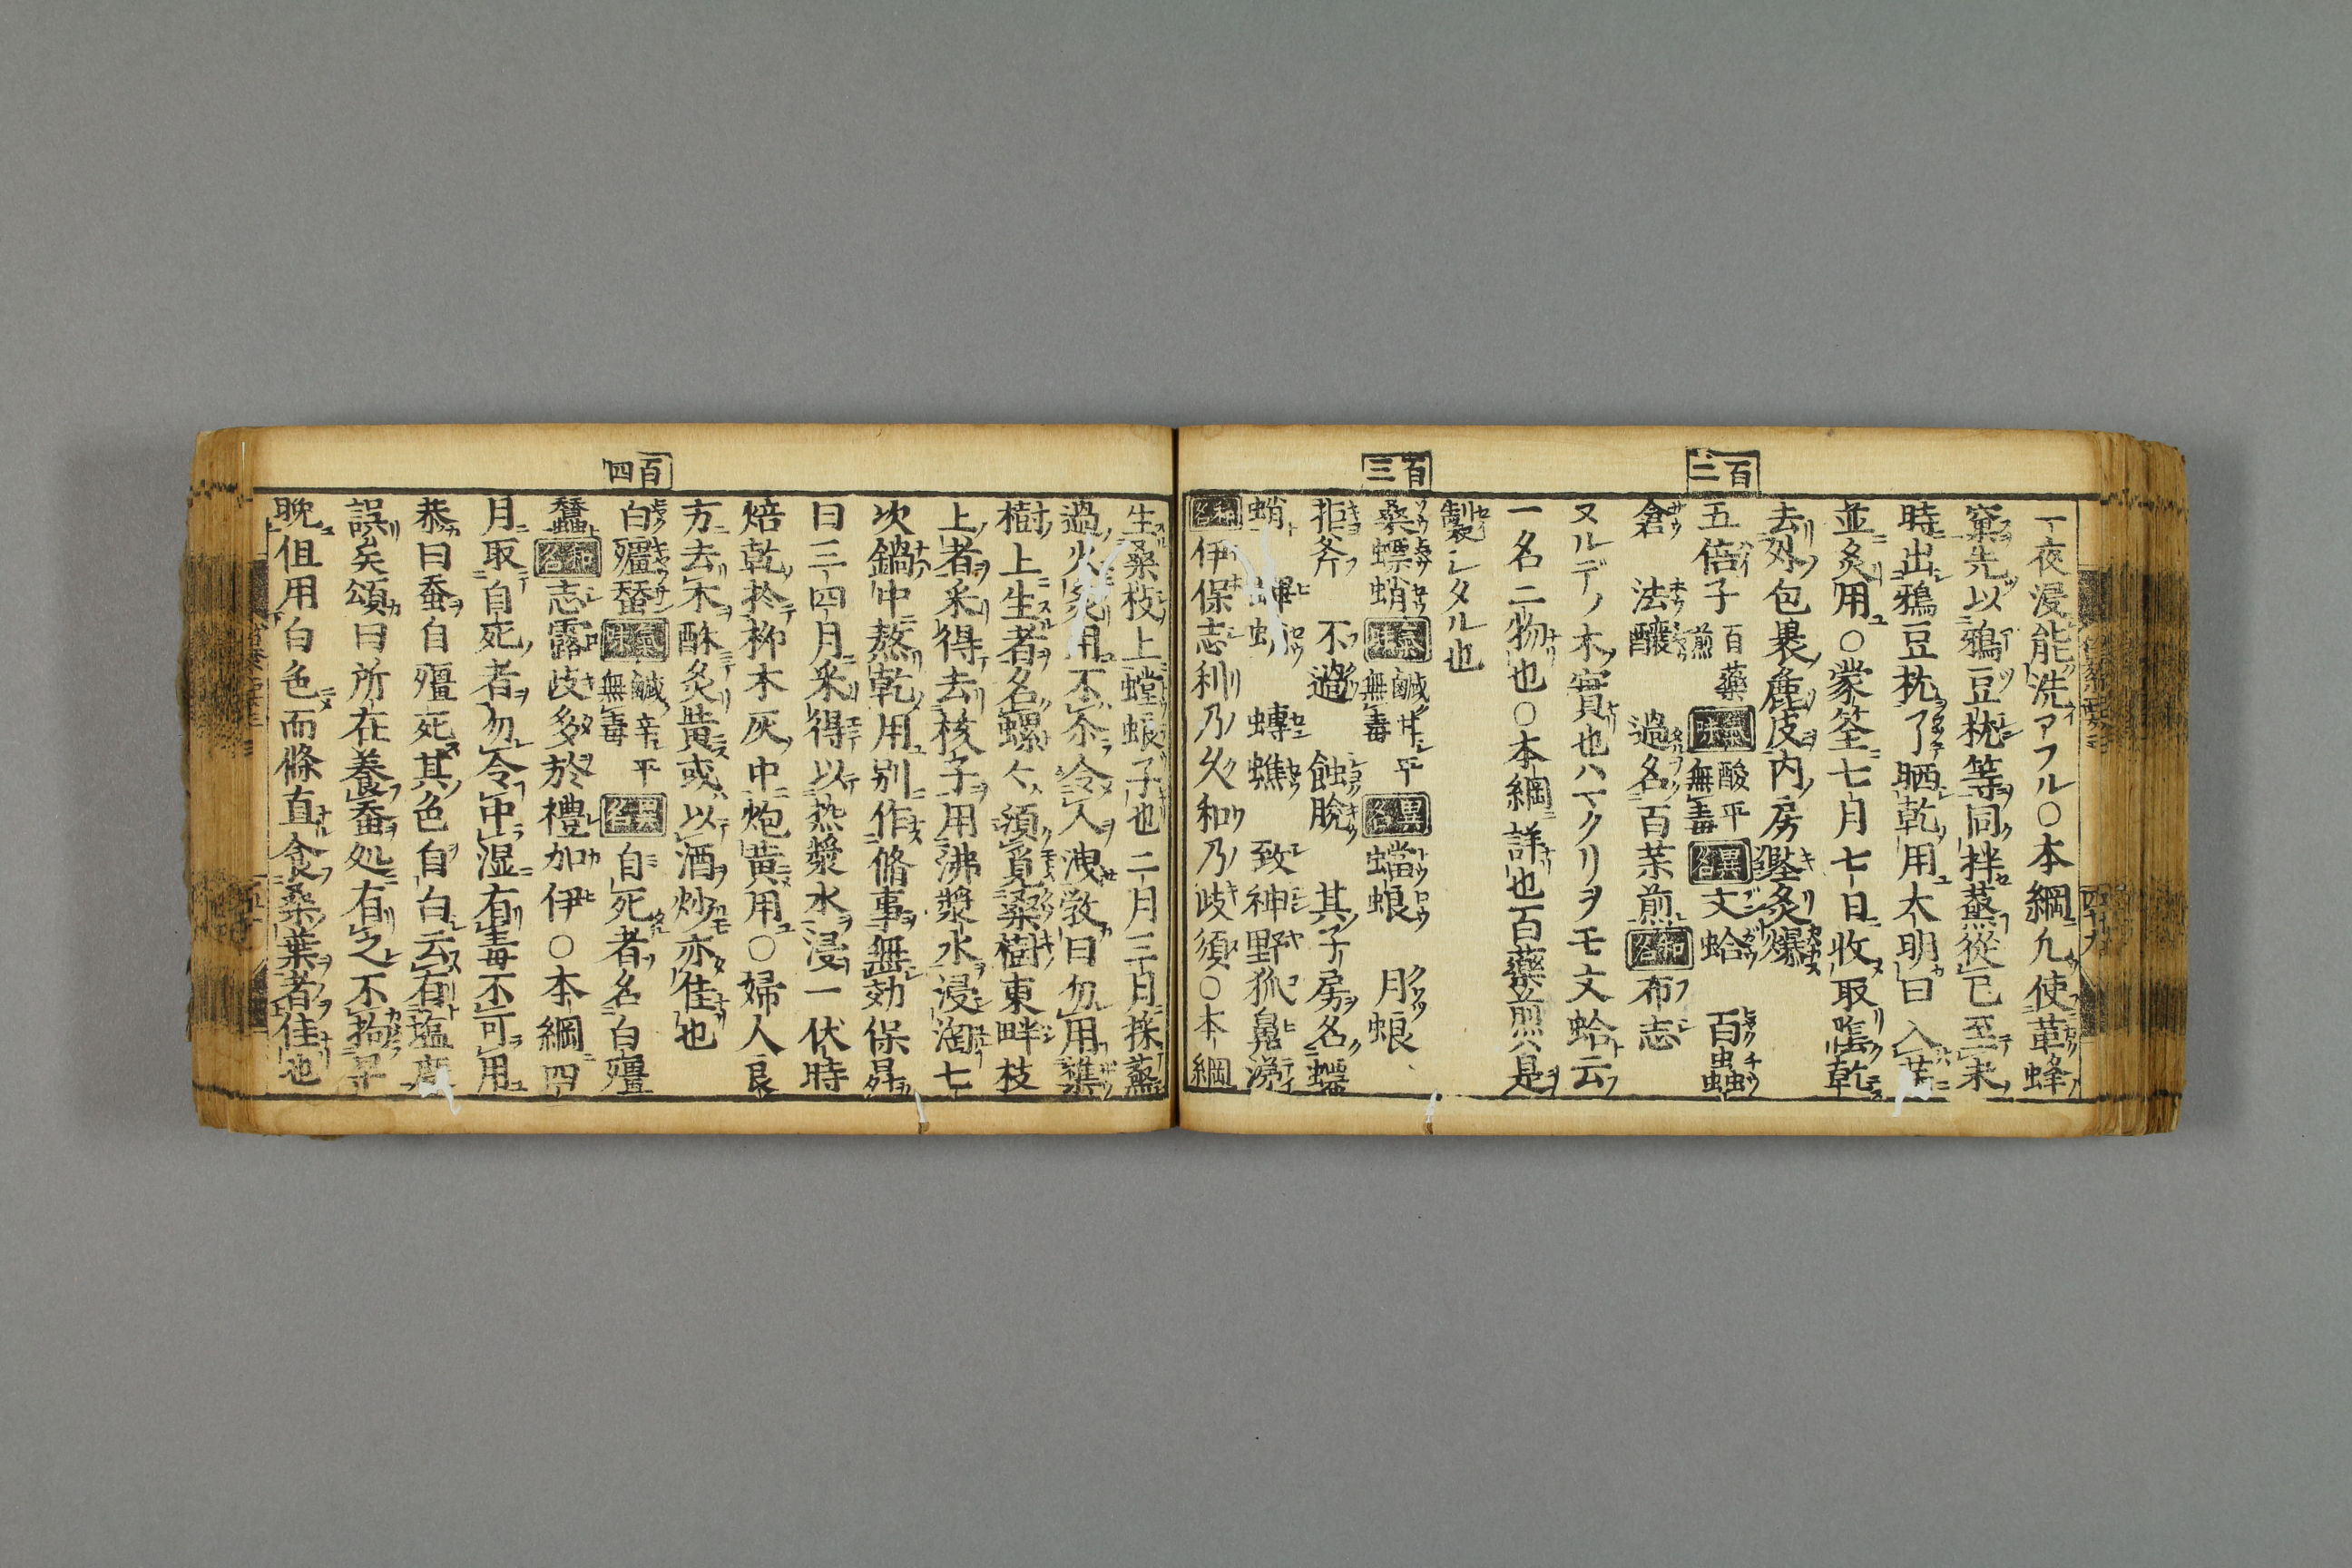 一夜浸能洗アフル○本綱凢使革蜂
窠先以鴉豆枕等同拌蒸從巳至未
時出鴉豆枕了晒乾用大明曰入薬
並炙用○蒙筌七月七日收取隂乾
去外包裹麁皮内房塹炙爆
百二
五倍子 百藥煎 氣味 酸平無毒 異名 文蛤 百蟲
倉 法釀 過名百茶煎 和名 布志
ヌルデノ木實也ハマクリヲモ文蛤云フ
一名二物也○本綱詳也百藥煎ハ是
製シタル也
百三
桑螵蛸 氣味 鹹甘平無毒 異名 蟷蜋 𧈢蜋
拒斧 不過 蝕肬 其子房名螵
蛸 蜱蛸 蟳蟭 致神 野狐鼻涕
和名 伊保志利乃久和乃岐須○本綱
生桑枝上螳蜋子也二月三月採蒸
過火炙用不尒令人洩斆曰勿用雜
樹上生者名螺螺須覓桑樹東畔枝
上者采得去核子用沸漿水浸淘七
次鍋中熬乾用别作脩事無効保昇
曰三四月采得以熱漿水浸一伏時
焙乾於柳木灰中炮黄用○婦人良
方去木酥炙黄或以酒炒亦佳也
百四
白殭蚕 氣味 鹹辛平無毒 異名 自死者名白殭
蠶 和名 志露岐多於禮加伊○本綱四
月取自死者勿令中湿有毒不可用
恭曰蚕自殭死其色自白云有塩度
誤矣頌曰所在養蚕処有之不拘早
晩但用白色而條直食桑葉者佳也